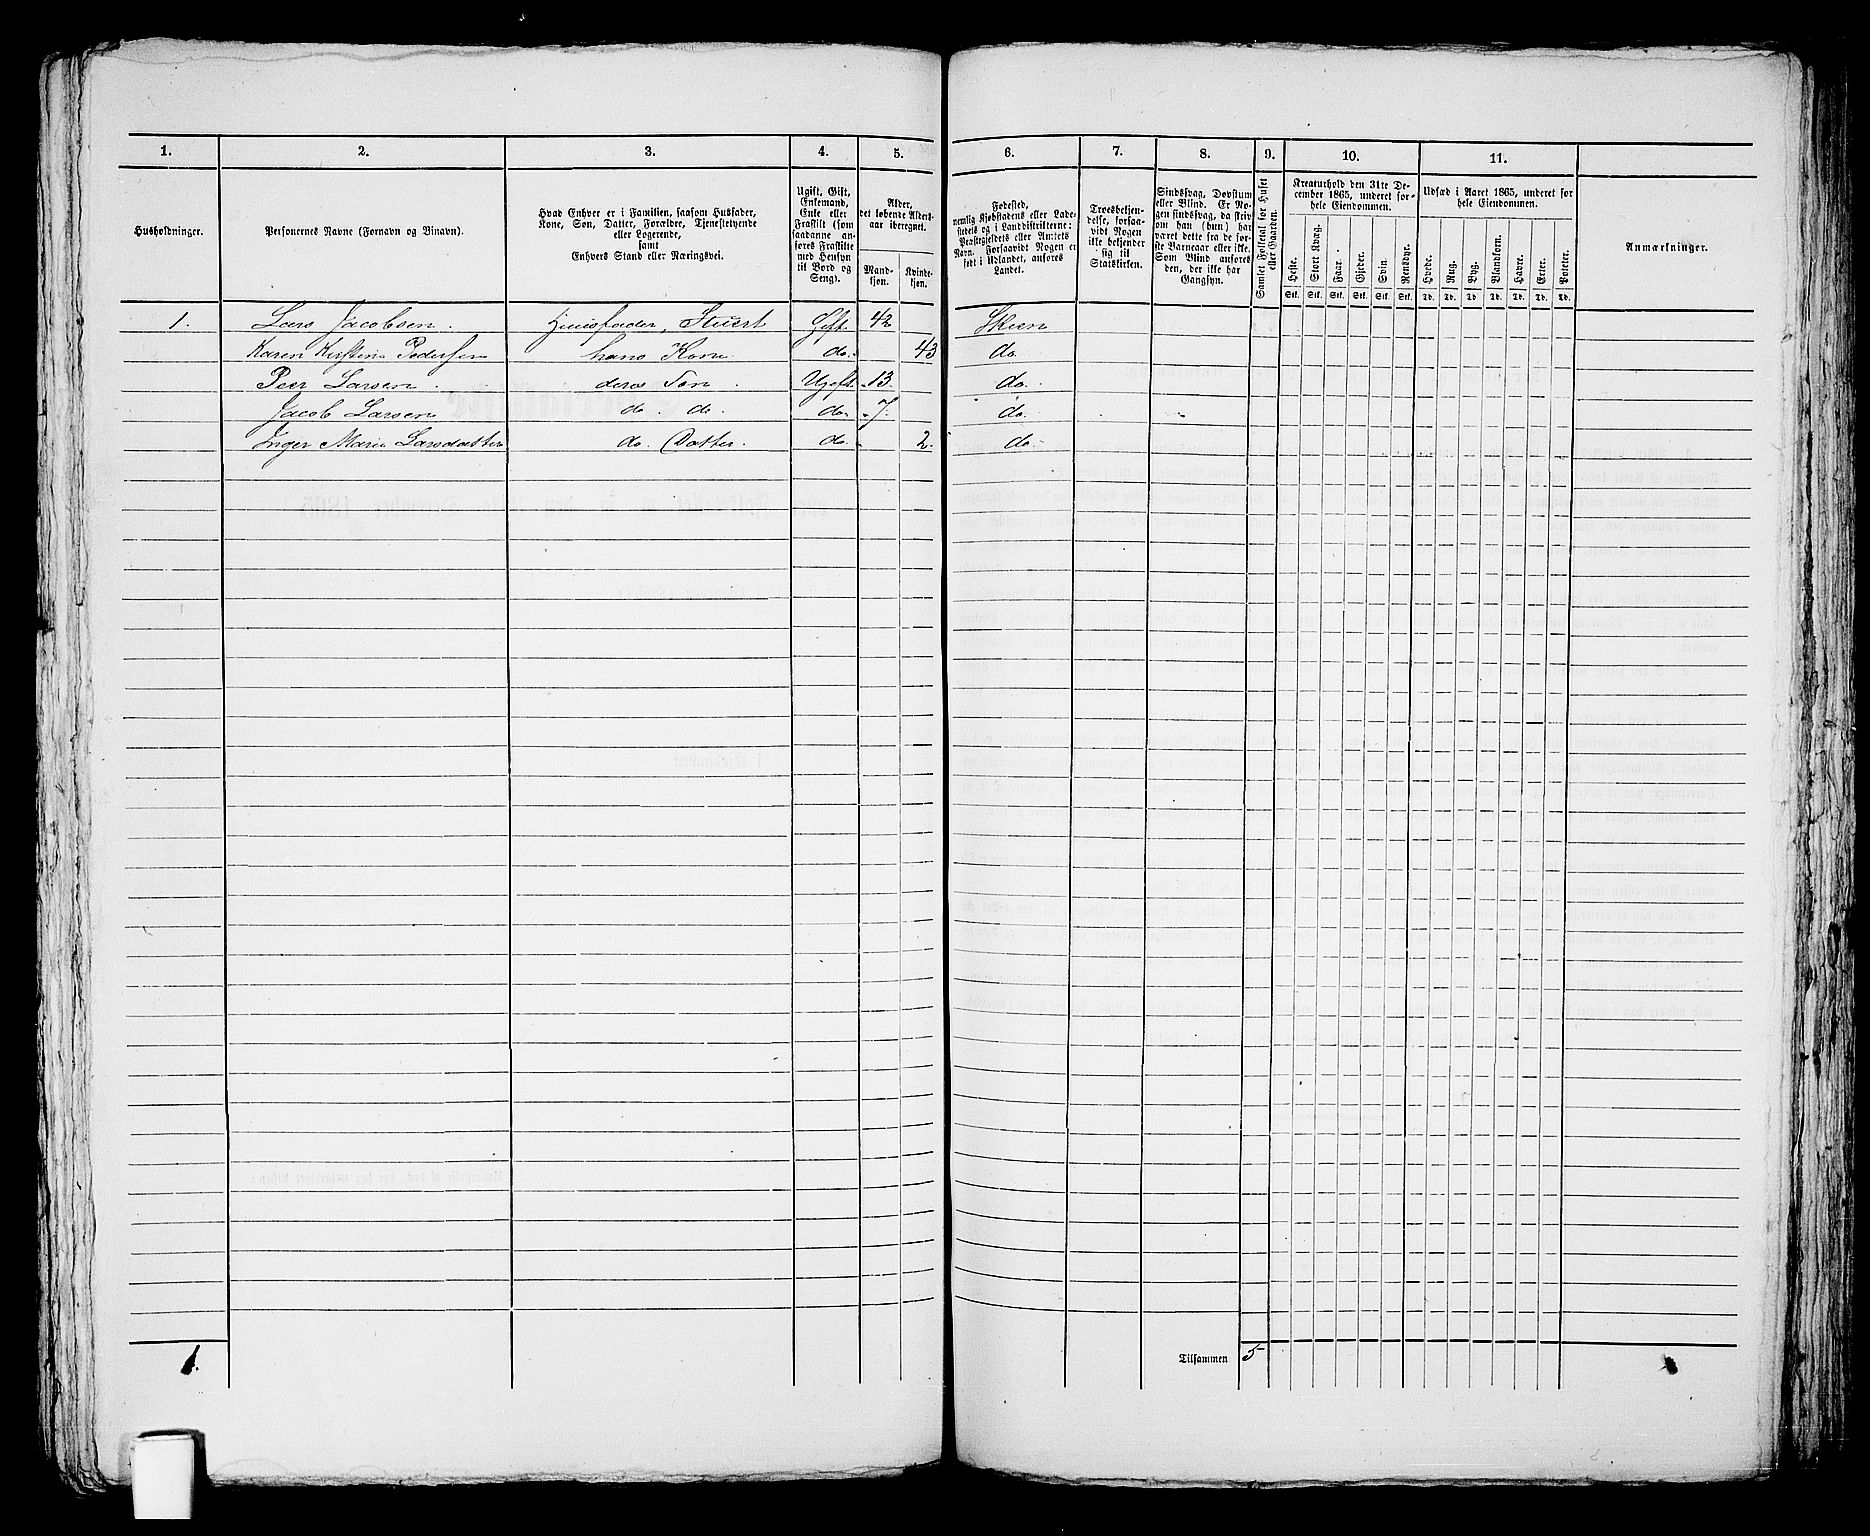 1. 2. 3. 4. 5. 6. 7. 8. 9. 10. 11.
Husholdninger.
Personernes Navne (Fornavn og Binavn).
Hvad Enhver er i Familien, saasom Husfader,
Kone, Søn, Datter, Forældre, Tjenestetyende
eller Logerende,
samt
Enhvers Stand eller Næringsvei.
Ugift, Gift,
Enkemand,
Enke eller
Fraskilt (som
saadanne an-
føres Fraskilte
med Hensyn
til Bord og
Seng).
Alder,
det løbende Alders-
aar iberegnet.
Mand-
kjøn.
Kvinde-
kjøn.
Fødested,
nemlig Kjøbstadens eller Lade-
stedets og i Landdistrikterne:
Præstegjeldets eller Amtets
Navn. Forsaavidt Nogen er
født i Udlandet, anføres
Landet.
Troesbekjen-
delse, forsaa-
vidt Nogen
ikke bekjender
sig til
Statskirken.
Sindssvag, Døvstum
eller Blind. Er No-
gen sindssvag, da skriv
om han (hun) har
været dette fra de før-
ste Barneaar eller ikke.
Som Blind anføres
den, der ikke har
Gangsyn.
Samlet Folketal for Huset
eller Gaarden.
Kreaturhold den 31te De-
cember 1865, underet for-
hele Eiendommen.
Heste. Stort Kvæg. Faar. Gjeder. Svin. Rensdyr.
Stk. Stk. Stk. Stk. Stk. Stk.
Udsæd i Aaret 1865, underet for
hele Eiendommen.
Hvede. Rug. Byg. Blandkorn. Havre. Erter. Poteter.
Td. Td. Td. Td. Td. Td. Td.
Anmærkninger.
1. Lars Jacobsen. Huusfader, Stuert Gift 42 Skien
Karen Kirstine Pedersen hans Kone do. 43 do.
Peer Larsen. deres Søn. Ugift 13 do.
Jacob Larsen do. do. do. 7 do.
Inger Marie Larsdatter do. Datter. do 2. do
1. Tilsammen 5